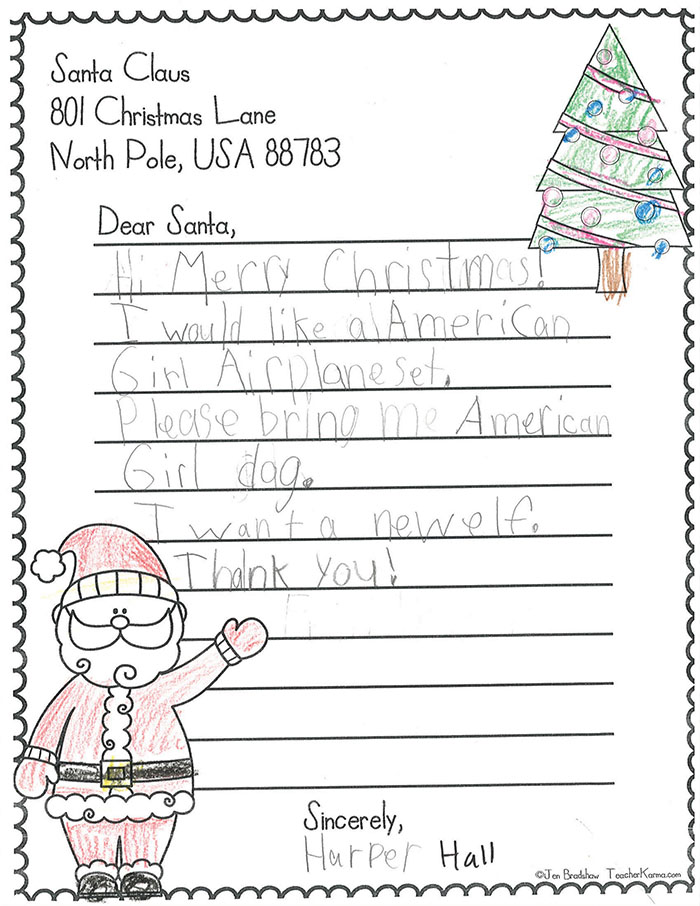 Santa Claus
801 Christmas Lane
North Pole, USA 88783
Dear Santa,
Hi Merry Christmas!
I would like a American
Girl Airplane set.
Please bring me American
Girl dag.
I want a new elf.
Thank you!
Sincerely,
Harper Hall
©Jen Bradshaw TeacherKarma.com